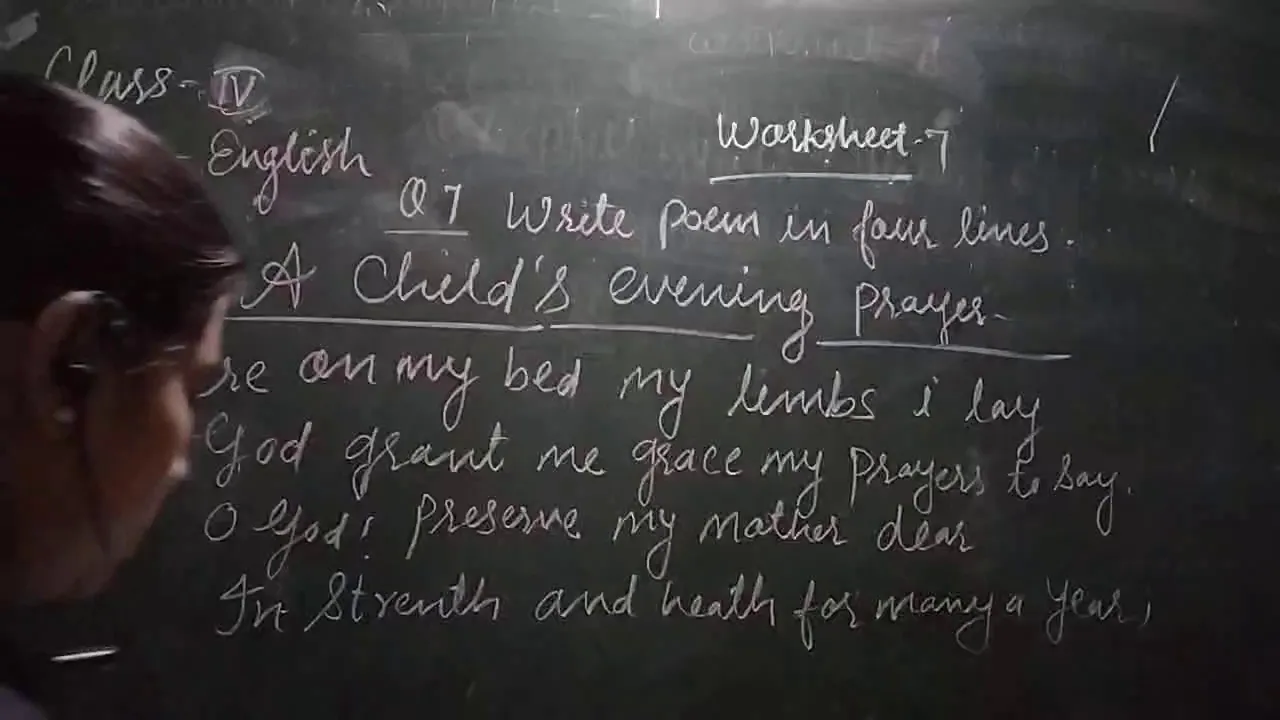 Class - IV
- English
Worksheet-7
Q 7 Write Poem in four lines.
A Child's evening Prayer-
re on my bed my limbs i lay
God grant me grace my Prayers to say.
O God! Preserve my mother dear
In Strenth and heath for many a year,